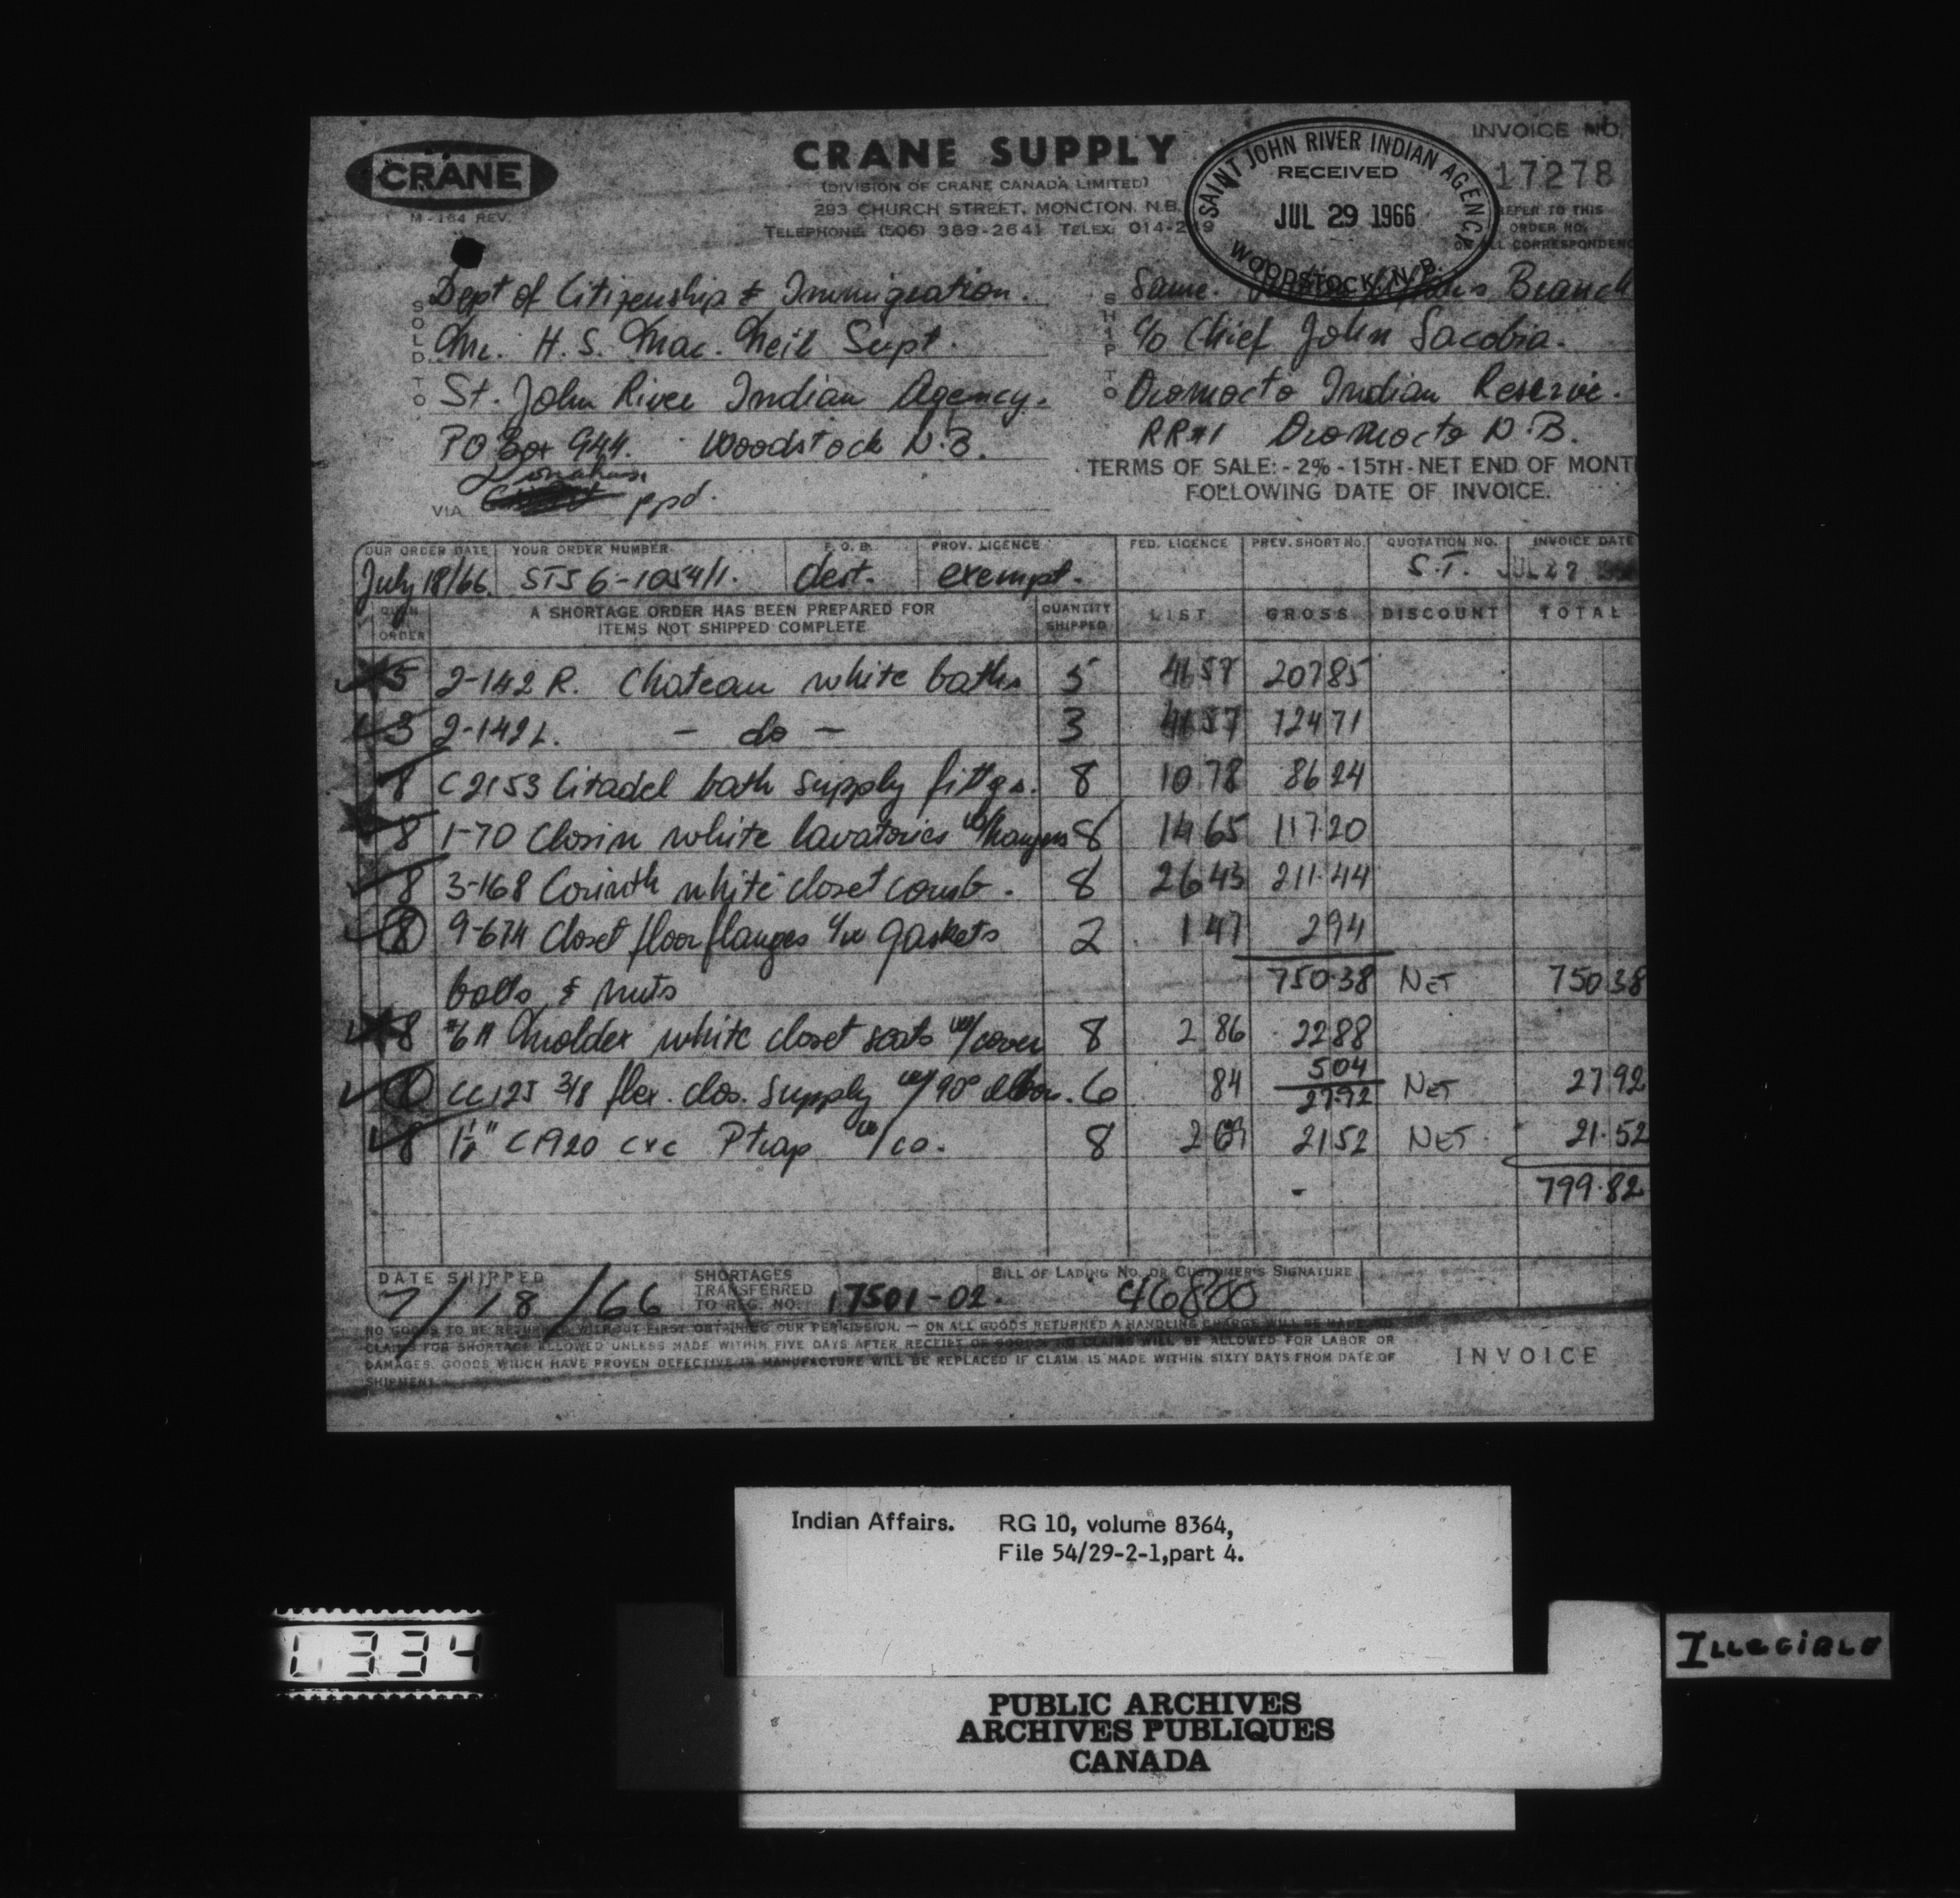 CRANE
M-164 REV.
CRANE SUPPLY
(DIVISION OF CRANE CANADA LIMITED)
293 CHURCH STREET, MONCTON, N.B.
TELEPHONE: (506) 389-2641 TELEX: 014-2
SAINT JOHN RIVER INDIAN AGENCY
RECEIVED
JUL 29 1966
WOODSTOCK, N.B.
INVOICE NO.
17278
REFER TO THIS
ORDER NO.
ON ALL CORRESPONDENC
SOLD TO
Dept of Citizenship & Immigration.
Mr. H. S. Mac. Neil Supt.
St. John River Indian Agency.
PO Box 944. Woodstock N.B.
VIA ppd.
SHIP TO
Same. Branch
c/o Chief John Sacobia.
Oromocto Indian Reserve.
RR#1 Oromocto N.B.
TERMS OF SALE:- 2% - 15TH - NET END OF MONT
FOLLOWING DATE OF INVOICE.
OUR ORDER DATE YOUR ORDER NUMBER F.O.B. PROV. LICENCE FED. LICENCE PREV. SHORT NO. QUOTATION NO. INVOICE DATE
July 18/66. STJ 6-1054/1. dest. exempt. S.T. JUL 27
QUAN. ORDER A SHORTAGE ORDER HAS BEEN PREPARED FOR QUANTITY SHIPPED LIST GROSS DISCOUNT TOTAL
ITEMS NOT SHIPPED COMPLETE
5 2-142 R. Chateau white baths 5 41 57 207 85
3 2-142 L. - do - 3 41 57 124 71
8 C2153 Citadel bath supply fittgs. 8 10 78 86 24
8 1-70 white lavatories w/hangers 8 14 65 117.20
8 3-168 Corinth white closet comb. 8 26 43 211.44
8 9-674 Closet floor flanges c/w gaskets 2 1 47 2 94
bolts & nuts 750.38 NET 750 38
8 Moldex white closet seats w/cover 8 2 86 22 88
CC125 3/8 flex. clos. supply w/90° elbow. 6 84 5 04
27 92 NET 27 92
8 1½" C1920 cxc Ptrap w/co. 8 2 69 21 52 NET 21.52
799.82
DATE SHIPPED
7/18/66
SHORTAGES
TRANSFERRED
TO REG. NO. 17501-02.
BILL OF LADING NO. OR CUSTOMER'S SIGNATURE
46800
NO GOODS TO BE RETURNED WITHOUT FIRST OBTAINING OUR PERMISSION. — ON ALL GOODS RETURNED A HANDLING CHARGE WILL BE MADE. NO
CLAIMS FOR SHORTAGE ALLOWED UNLESS MADE WITHIN FIVE DAYS AFTER RECEIPT OF GOODS. NO CLAIMS WILL BE ALLOWED FOR LABOR OR
DAMAGES. GOODS WHICH HAVE PROVEN DEFECTIVE IN MANUFACTURE WILL BE REPLACED IF CLAIM IS MADE WITHIN SIXTY DAYS FROM DATE OF
SHIPMENT.
INVOICE
Indian Affairs. RG 10, volume 8364,
File 54/29-2-1,part 4.
334
ILLEGIBLE
PUBLIC ARCHIVES
ARCHIVES PUBLIQUES
CANADA